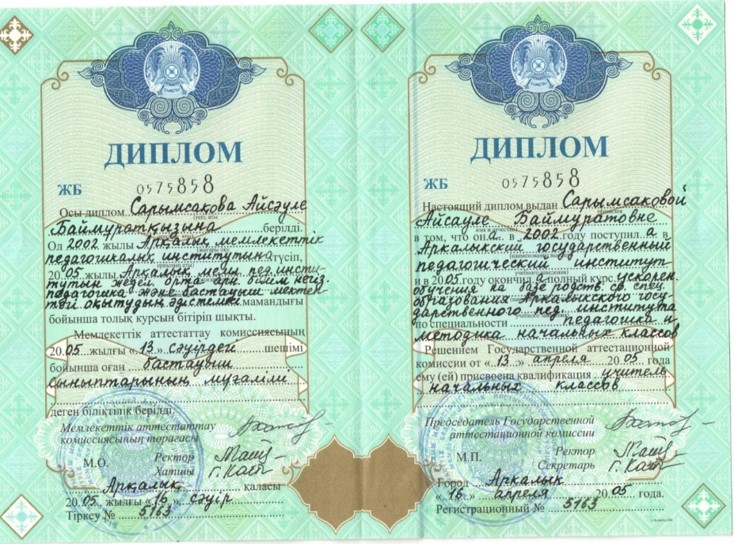 ДИПЛОМ
ЖБ 0575858
Осы диплом Сарымсакова Айсәуле
Баймуратқызына берілді
Ол 2002 жылы Арқалық мемлекеттік
педагогикалық институтына түсіп,
20 05 жылы Арқалық мемл. пед. инсти-
тутын жедел орта арн. білім негіз.
педагогика және бастауыш мектеп-
тегі оқытудың әдістемесі мамандығы
бойынша толық курсын бітіріп шықты.
Мемлекеттік аттестаттау комиссиясының
20 05 жылғы «13» сәуірдегі шешімі
бойынша оған бастауыш
сыныптарының мұғалімі
деген біліктілік берілді.
Мемлекеттік аттестаттау
комиссиясының төрағасы
М.О. Ректор
Хатшы
Арқалық қаласы
20 05 жылғы «16» сәуір
Тіркеу № 5163
ДИПЛОМ
ЖБ 0575858
Настоящий диплом выдан Сарымсаковой
Айсауле Баймуратовне
в том, что он а в 2002 году поступил а в
Аркалыкский государственный
педагогический институт
и в 20 05 году окончил а полный курс ускорен.
обучения на базе родств. ср. спец.
образования Аркалыкского госу-
дарственного пед. института
по специальности педагогика и
методика начальных классов
Решением Государственной аттестационной
комиссии от «13» апреля 20 05 года
ему (ей) присвоена квалификация учитель
начальных классов
Председатель Государственной
аттестационной комиссии
М.П. Ректор
Секретарь
Город Аркалык
«16» апреля 20 05 года.
Регистрационный № 5163